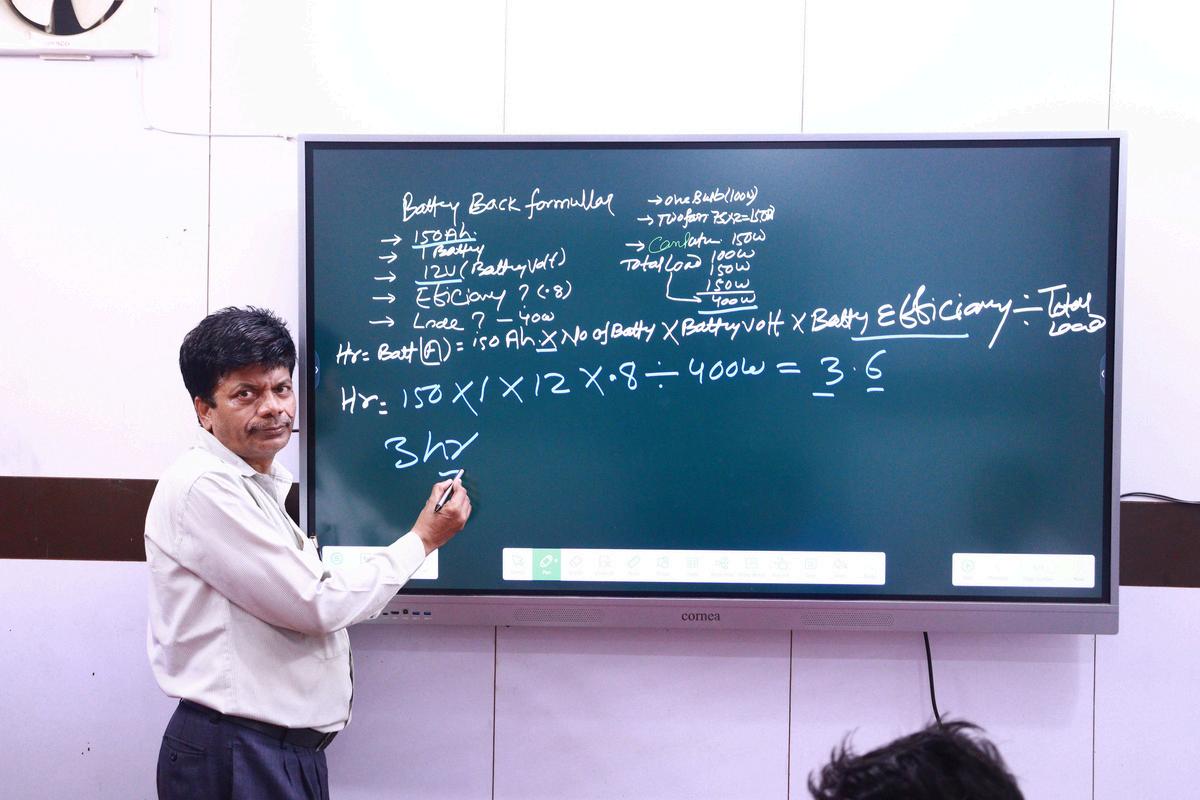 Battey Back formullae
→ 150Ah.
→ 1 Battey
→ 12V (Battey Volt)
→ Efficiancy ? (.8)
→ Lode ? – 40w
→ one Bulb (100w)
→ Two fan 75x2=150w
→ 150w
Total Load 100w
150w
150w
400w
Hr= Batt (A) = 150 Ah. X No of Batty X Battey Volt X Batty Efficiany ÷ Total Load
Hr= 150 X 1 X 12 X .8 ÷ 400w = 3.6
3 hr
Pen
cornea